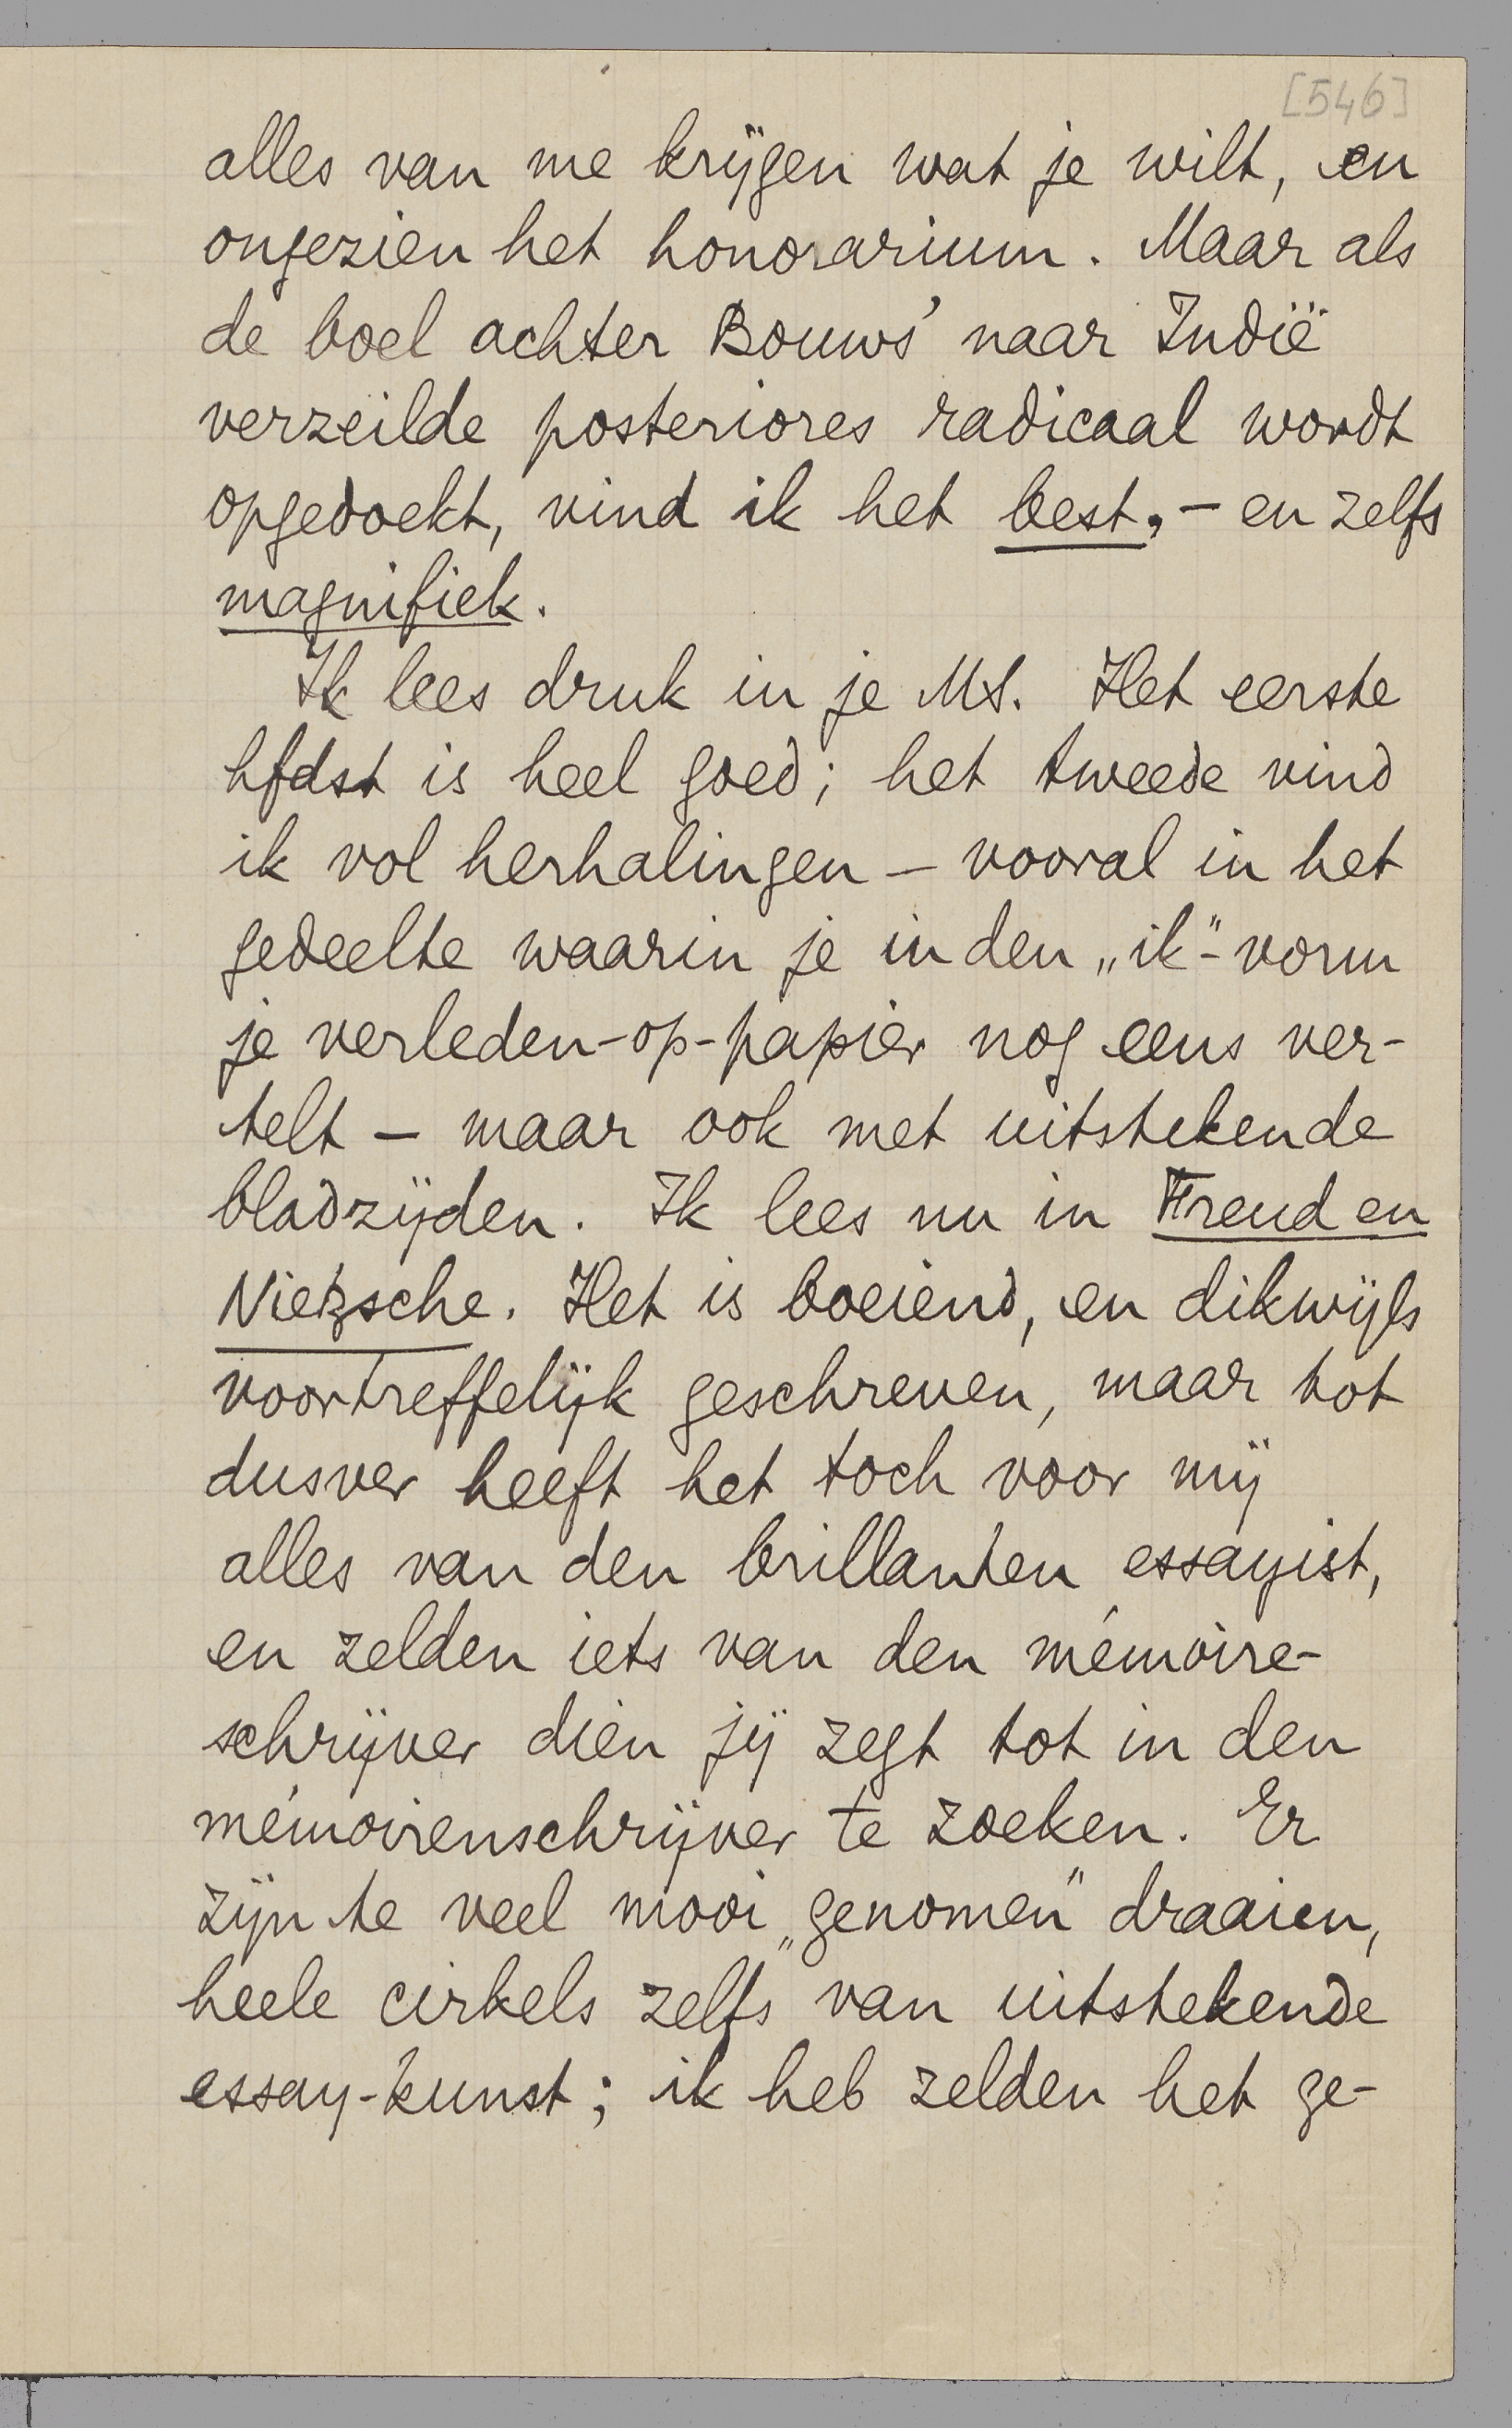 [546]
alles van me krijgen wat je wilt, en
ongezien het honorarium. Maar als
de boel achter Bouws' naar Indië
verzeilde posteriores radicaal wordt
opgedoekt, vind ik het best, – en zelfs
magnifiek.
Ik lees druk in je MS. Het eerste
hfdst is heel goed; het tweede vind
ik vol herhalingen – vooral in het
gedeelte waarin je in den „ik"-vorm
je verleden-op-papier nog eens ver-
telt – maar ook met uitstekende
bladzijden. Ik lees nu in Freud en
Nietzsche. Het is boeiend, en dikwijls
voortreffelijk geschreven, maar tot
dusver heeft het toch voor mij
alles van den brillanten essayist,
en zelden iets van den mémoire-
schrijver dien jij zegt tot in den
mémoirenschrijver te zoeken. Er
zijn te veel mooi „genomen" draaien,
heele cirkels zelfs van uitstekende
essay-kunst; ik heb zelden het ge-